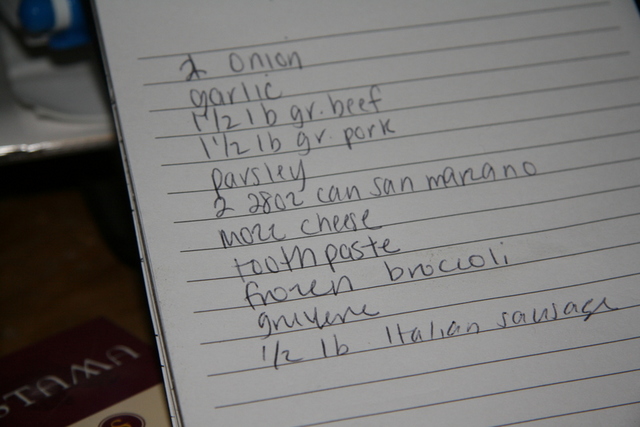 2 onion
garlic
1 1/2 lb gr. beef
1 1/2 lb gr. pork
parsley
2 28oz can san marzano
mozz cheese
toothpaste
frozen broccoli
gruyere
1/2 lb Italian sausage
STAMA